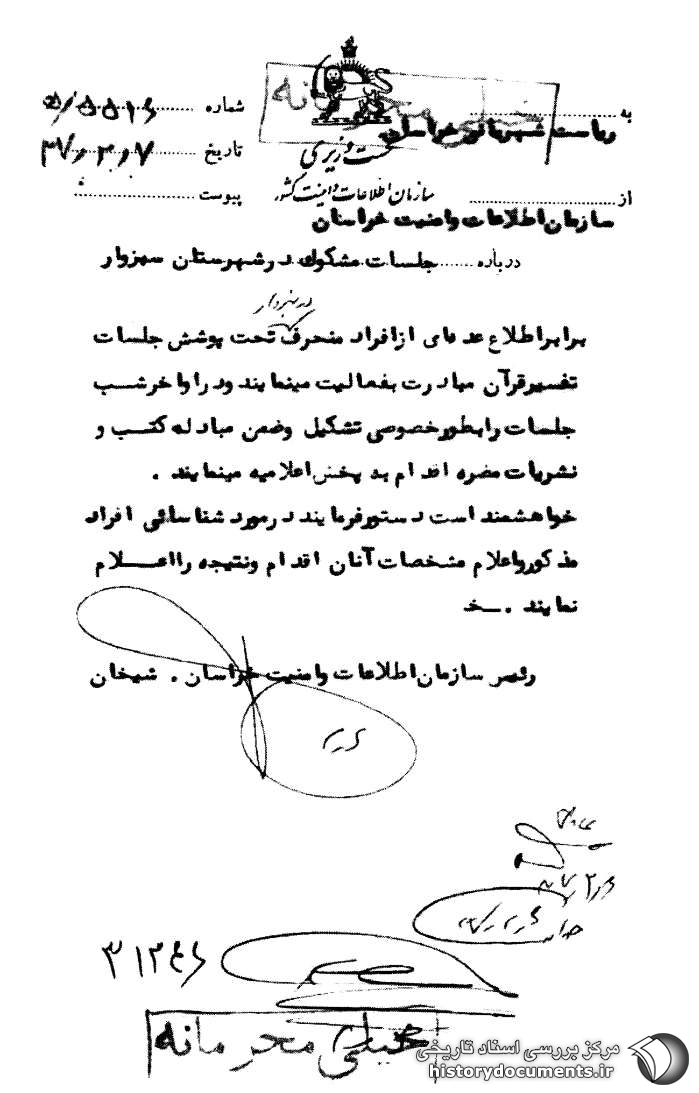 خیلی محرمانه
به
ریاست شهربانی خراسان
شماره
تاریخ
پیوست
نخست وزیری
سازمان اطلاعات و امنیت کشور
از
سازمان اطلاعات وامنیت خراسان
درباره جلسات مشکوک درشهرستان سبزوار
برابراطلاع عده ای ازافراد منحرف تحت پوشش جلسات
تفسیرقرآن مبادرت بفعالیت مینمایند ودراواخرشب
جلسات رابطورخصوصی تشکیل وضمن مبادله کتب و
نشریات مضره اقدام به پخش اعلامیه مینمایند .
خواهشمند است دستورفرمایند درمورد شناسائی افراد
مذکورواعلام مشخصات آنان اقدام ونتیجه رااعلام
نمایند . خ
رئیس سازمان اطلاعات وامنیت خراسان . شیخان
خیلی محرمانه
مرکز بررسی اسناد تاریخی
historydocuments.ir